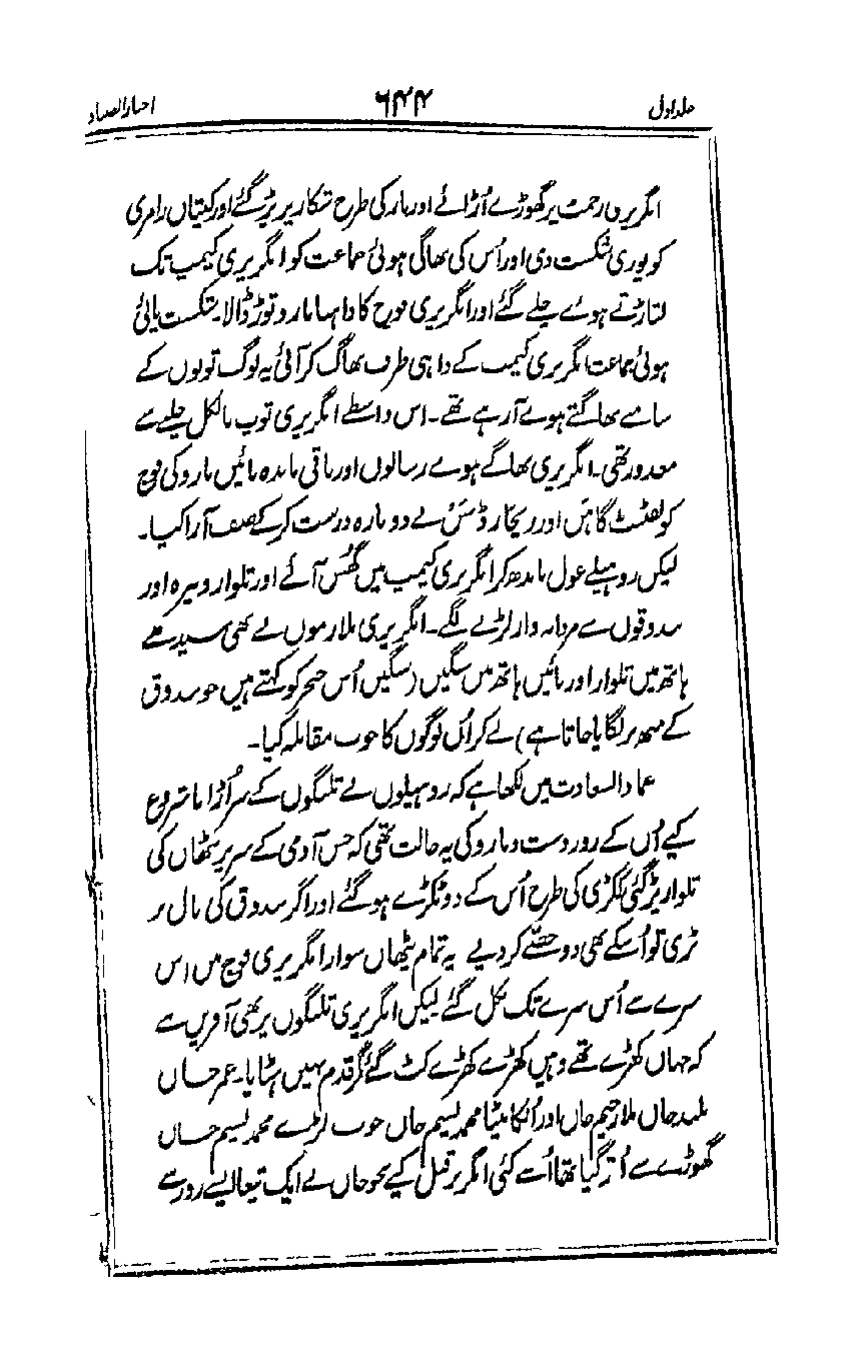 جلد اول ۶۴۴ اخبار الصنادید
انگریزی رحمت پر گھوڑے اُڑائے اور باز کی طرح شکار پر پڑ گئے اور کپتان رامزی
کو پوری شکست دی اور اُس کی بھاگی ہوئی جماعت کو انگریزی کیمپ تک
لتاڑتے ہوئے چلے گئے اور انگریزی فوج کا داہنا بازو توڑ ڈالا۔ شکست پائی
ہوئی جماعت انگریزی کیمپ کے داہنی طرف بھاگ کر آئی یہ لوگ توپوں کے
سامنے بھاگتے ہوے آرہے تھے۔ اس واسطے انگریزی توپ بالکل چلنے سے
معذور تھی۔ انگریزی بھاگے ہوے رسالوں اور باقی ماندہ بائیں بازو کی فوج
کو لفٹنٹ گاہن اور ریچارڈسن نے دوبارہ درست کرکے صف آرا کیا۔
لیکن روہیلے غول باندھ کر انگریزی کیمپ میں گھُس آئے اور تلوار و نیزہ اور
بندوقوں سے مردانہ وار لڑنے لگے۔ انگریزی ملازموں نے بھی سیدھے
ہاتھ میں تلوار اور بائیں ہاتھ میں سنگین (سنگین اُس خنجر کو کہتے ہیں جو بندوق
کے منھ پر لگایا جاتا ہے) لے کر اُن لوگوں کا خوب مقابلہ کیا۔
عماد السعادت میں لکھا ہے کہ روہیلوں نے تلنگوں کے سر اُڑانا شروع
کیے اُن کے زور دست و بازو کی یہ حالت تھی کہ جس آدمی کے سر پر پٹھان کی
تلوار پڑ گئی ککڑی کی طرح اُس کے دو ٹکڑے ہو گئے اور اگر بندوق کی نال پر
پڑی تو اُسکے بھی دو حصّے کر دیے یہ تمام پٹھان سوار انگریزی فوج میں اس
سرے سے اُس سرے تک نکل گئے لیکن انگریزی تلنگوں پر بھی آفریں ہے
کہ جہاں کھڑے تھے وہیں کھڑے کھڑے کٹ گئے مگر قدم نہیں ہٹایا۔ عمر خان
بلند خان ملا رحیم خان اور اُنکا بیٹا محمد نسیم خان خوب لڑے محمد نسیم خان
گھوڑے سے اُتر گیا تھا اُسنے کئی انگریز قتل کیے نجو خان نے ایک تیغا ایسے زور سے